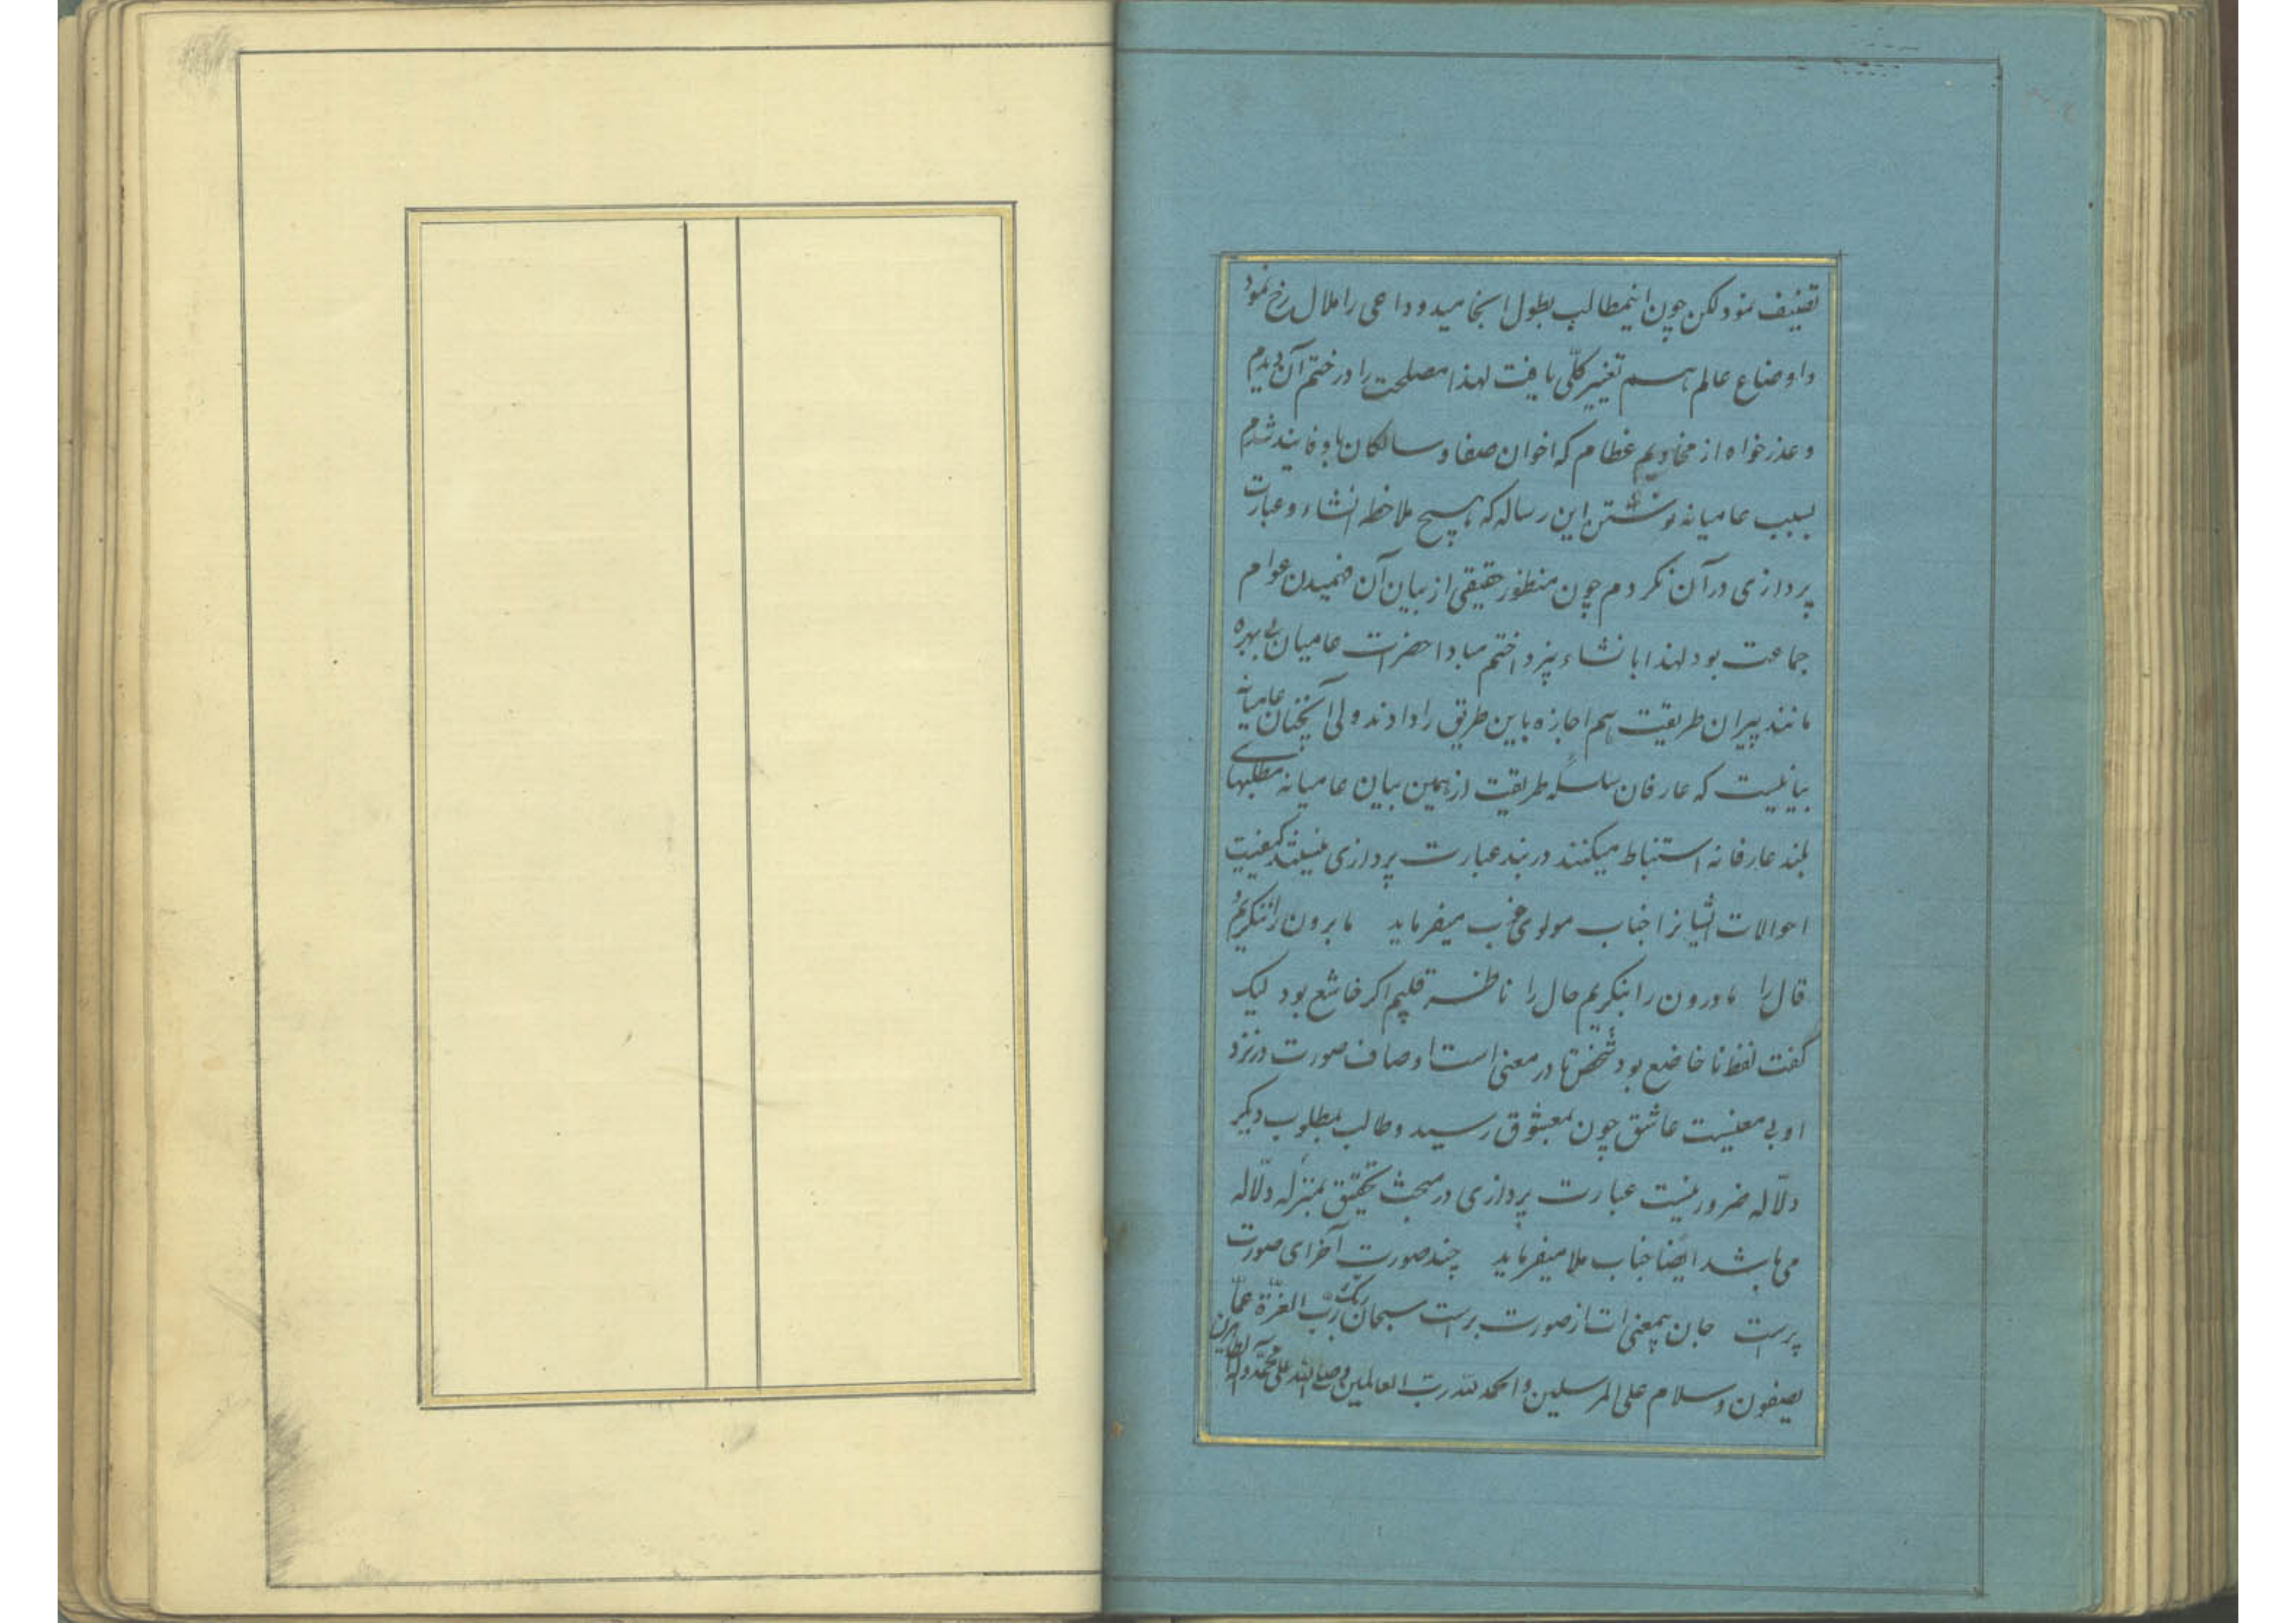 تصنیف نمود لکن چون اینمطالب بطول انجامید و داعی را ملال رخ نمود
و اوضاع عالم هم تغییر کلّی یافت لهذا مصلحت را در ختم آن دیدم
و عذرخواه از مخادیم عظام که اخوان صفا و سالکان با وفایند شدم
بسبب عامیانه نوشتن این رساله که هیچ ملاحظه انشاء و عبارت
پردازی در آن نکردم چون منظور حقیقی از بیان آن فهمیدن عوام
جماعت بود لهذا بانشاء نپرداختم مبادا حضرات عامیان بی بهره
مانند پیران طریقت هم اجازه باین طریق را دادند ولی آنچنان عامیانه
بیانیست که عارفان سلسله طریقت از همین بیان عامیانه مطلبهای
بلند عارفانه استنباط میکنند در بند عبارت پردازی نیستند کیفیت
احوالات ایشانرا جناب مولوی خوب میفرماید ما برون را ننگریم و
قال را ما درون را بنگریم حال را ناظر قلبیم اگر خاشع بود لیک
گفت لفظ نا خاضع بود شخص تا در معنی است اوصاف صورت در نزد
او بی معنیست عاشق چون بمعشوق رسید و طالب بمطلوب دیگر
دلّاله ضرور نیست عبارت پردازی در مبحث تحقیق بمنزله دلّاله
می باشد ایضا جناب ملا میفرماید چند صورت آخر ای صورت
پرست جان بیمعنی ات از صورت برست سبحان ربک ربّ العزّة عمّا
یصفون و سلام علی المرسلین و الحمد لله ربّ العالمین و صلی الله علی محمّد و آله الطاهرین